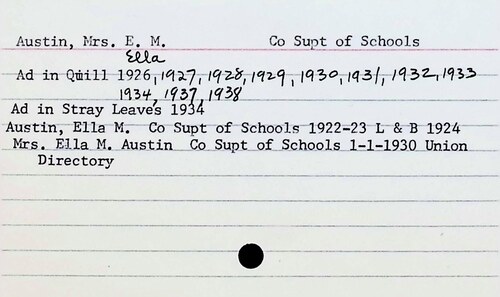 Austin, Mrs. E. M. Co Supt of Schools
Ella
Ad in Quill 1926, 1927, 1928, 1929, 1930, 1931, 1932, 1933
1934, 1937, 1938
Ad in Stray Leaves 1934
Austin, Ella M. Co Supt of Schools 1922-23 L & B 1924
Mrs. Ella M. Austin Co Supt of Schools 1-1-1930 Union
Directory